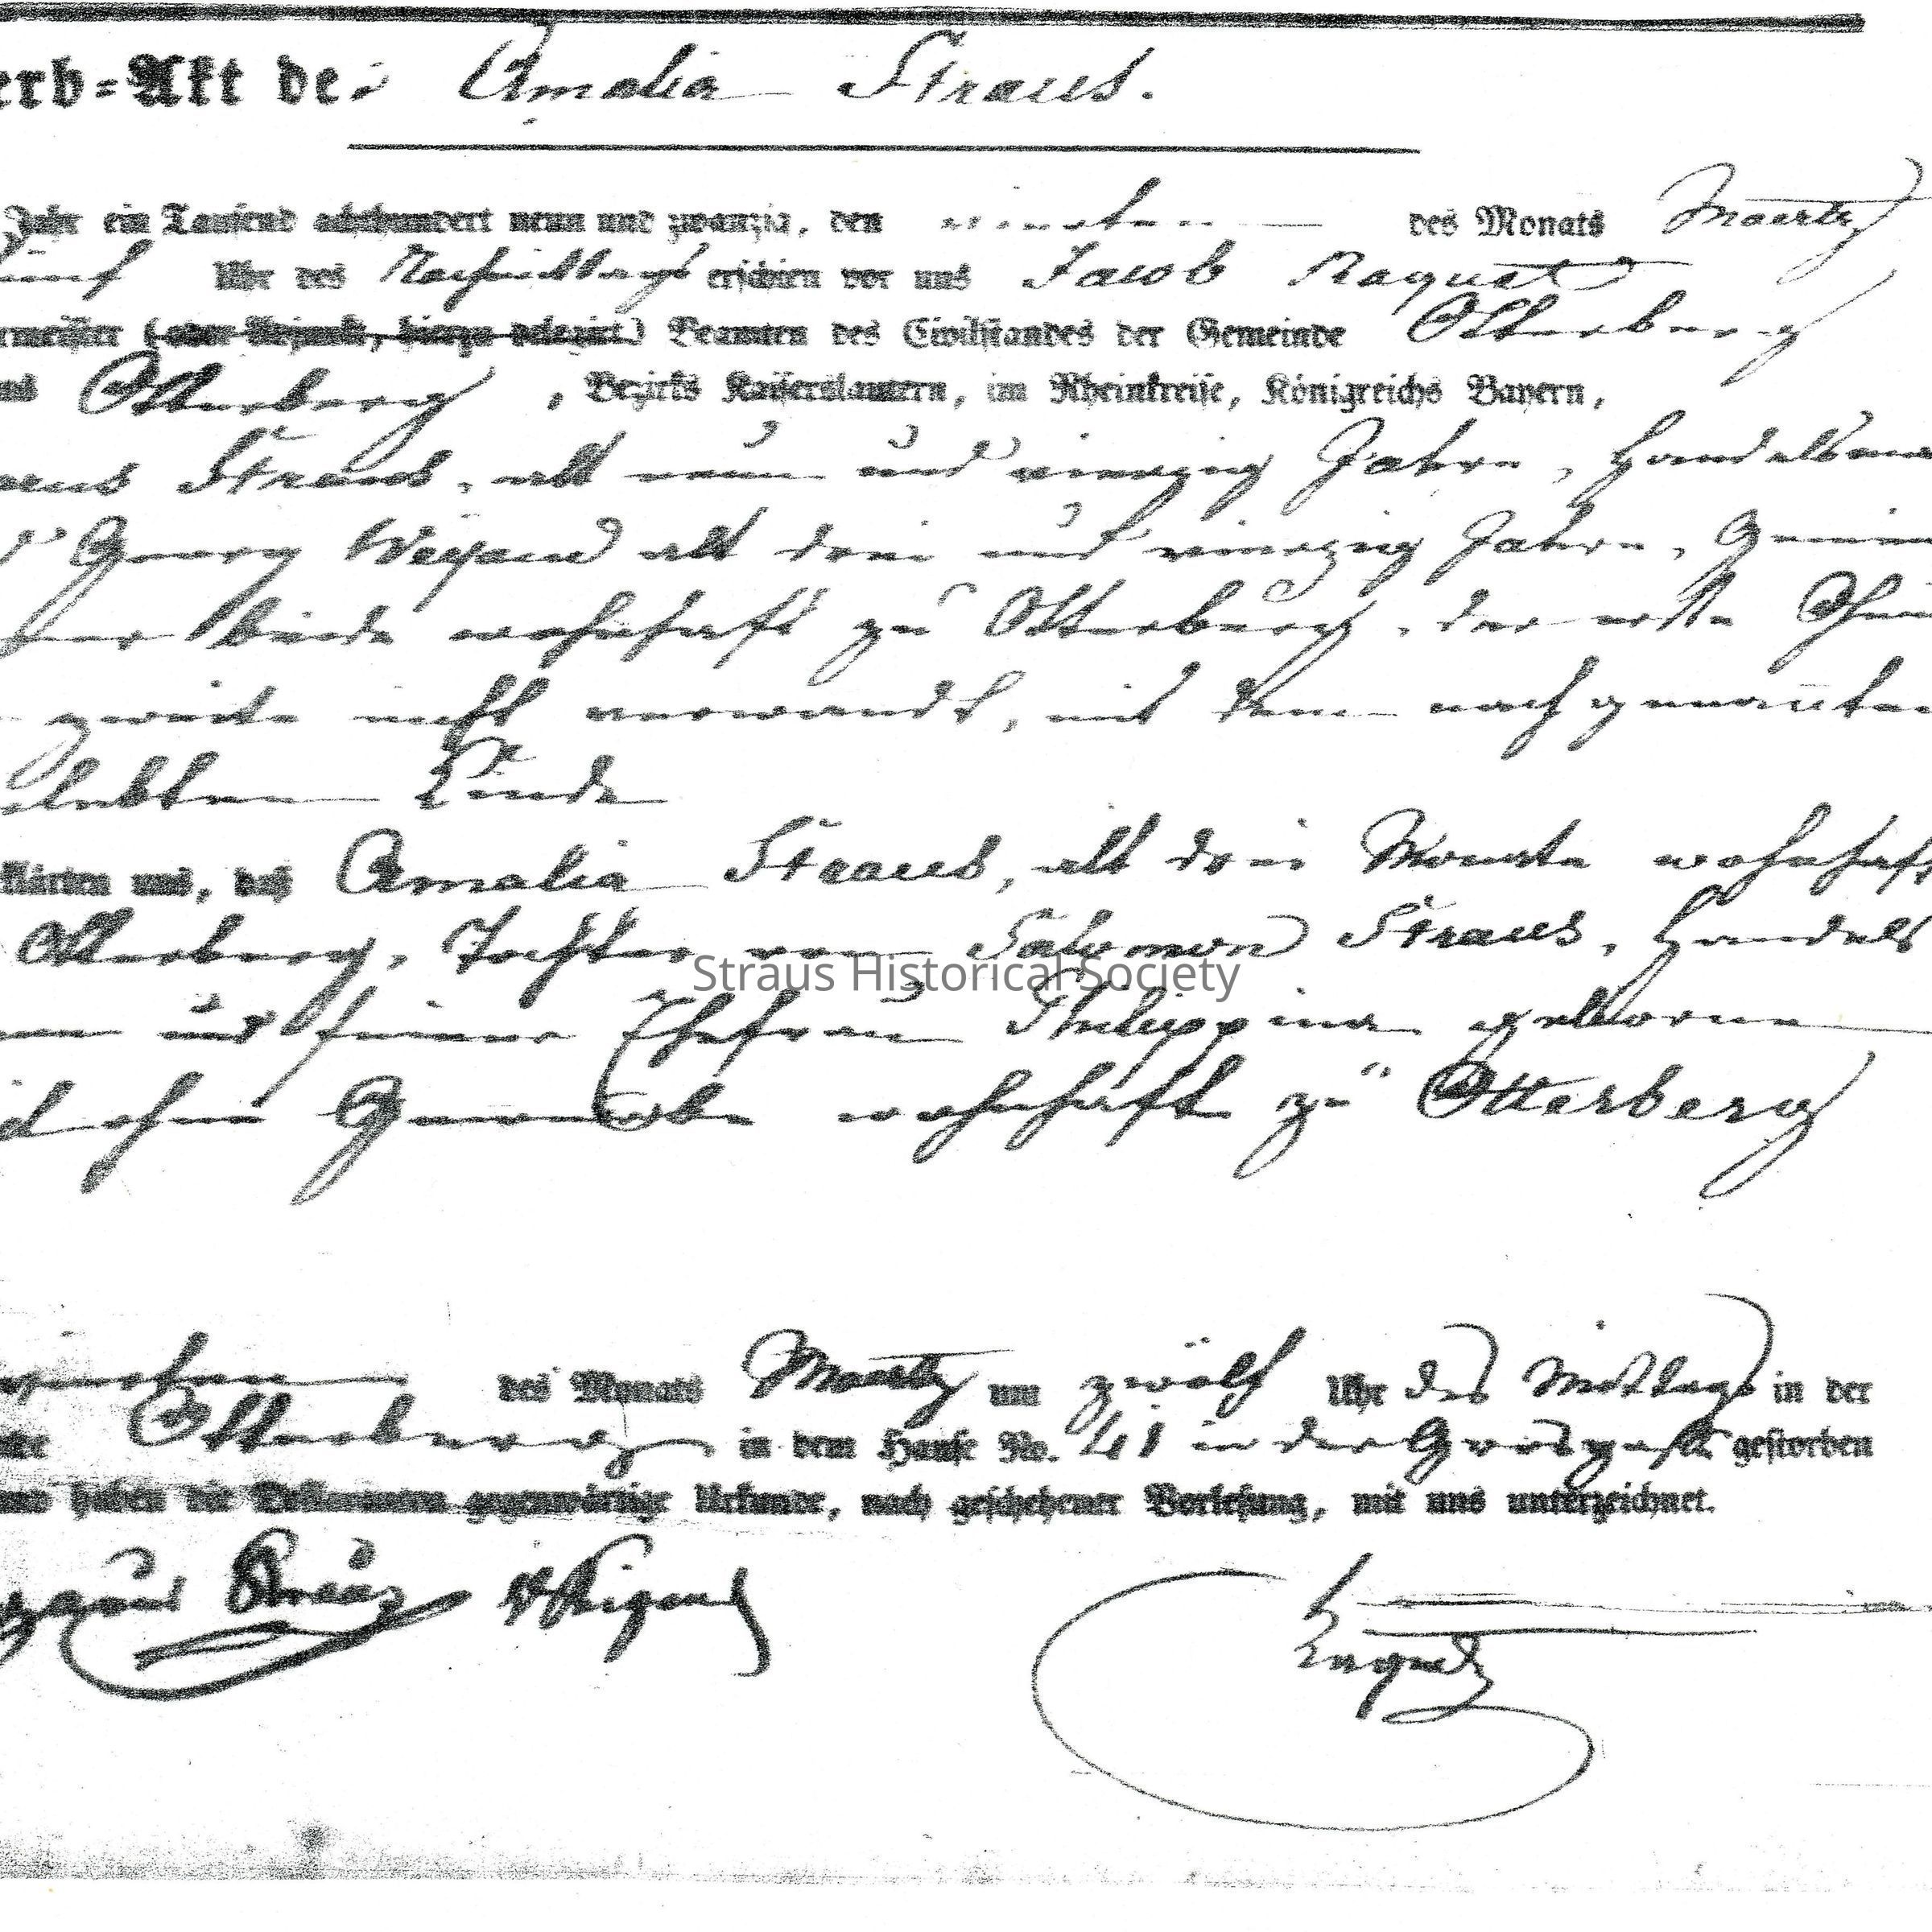 erb=Akt der Amalia Straus.
Jahr ein Tausend achthundert neun und zwanzig, den des Monats Maertz
fünf Uhr des Nachmittags erschien vor uns Jacob Raquet
rmeister (oder Adjunkt, hierzu delegirt) Beamten des Civilstandes der Gemeinde Otterberg
Otterberg, Bezirks Kaiserslautern, im Rheinkreise, Königreichs Bayern,
Straus, alt neun und vierzig Jahre, Handelsma
Georg Weygand alt drei und vierzig Jahre,
beide wohnhaft zu Otterberg, der erste
zweite nicht verwandt, mit dem nachgenannten
lebten Kinde
klärten uns, daß Amalia Straus, alt drei Monate wohnhaft
Otterberg, Tochter von Salomon Straus, Handels
und seiner Ehefrau Philippina geborne
ohne Gewerbe wohnhaft zu Otterberg
Straus Historical Society
des Monats Maertz um zwölf Uhr des Mittags in der
Otterberg in dem Hause No. 41 in der gestorben
und haben die Deklaranten gegenwärtige Urkunde, nach geschehener Vorlesung, mit uns unterzeichnet.
Straus Weigand Raquet